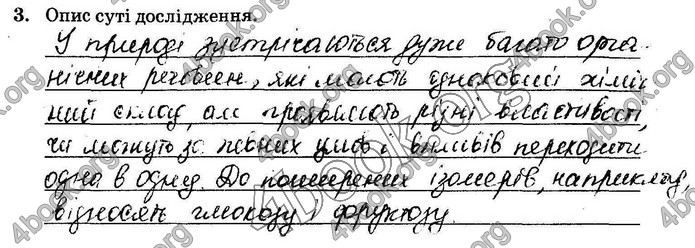 3. Опис суті дослідження.
У природі зустрічаються дуже багато орга-
нічних речовин, які мають однаковий хіміч-
ний склад, але проявляють різні властивості,
чи можуть за певних умов і впливів переходити
одна в одну. До поширених ізомерів, наприклад,
відносять глюкозу і фруктозу.
4book.org